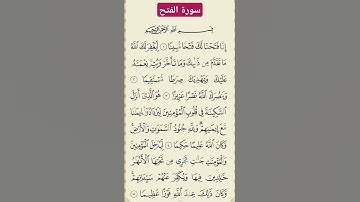 سورة الفتح
بِسْمِ اللَّهِ الرَّحْمَٰنِ الرَّحِيمِ
إِنَّا فَتَحْنَا لَكَ فَتْحًا مُّبِينًا ١ لِّيَغْفِرَ لَكَ اللَّهُ
مَا تَقَدَّمَ مِن ذَنبِكَ وَمَا تَأَخَّرَ وَيُتِمَّ نِعْمَتَهُ
عَلَيْكَ وَيَهْدِيَكَ صِرَاطًا مُّسْتَقِيمًا ٢
وَيَنصُرَكَ اللَّهُ نَصْرًا عَزِيزًا ٣ هُوَ الَّذِي أَنزَلَ
السَّكِينَةَ فِي قُلُوبِ الْمُؤْمِنِينَ لِيَزْدَادُوا إِيمَانًا
مَّعَ إِيمَانِهِمْ وَلِلَّهِ جُنُودُ السَّمَاوَاتِ وَالْأَرْضِ
وَكَانَ اللَّهُ عَلِيمًا حَكِيمًا ٤ لِّيُدْخِلَ الْمُؤْمِنِينَ
وَالْمُؤْمِنَاتِ جَنَّاتٍ تَجْرِي مِن تَحْتِهَا الْأَنْهَارُ
خَالِدِينَ فِيهَا وَيُكَفِّرَ عَنْهُمْ سَيِّئَاتِهِمْ
وَكَانَ ذَٰلِكَ عِندَ اللَّهِ فَوْزًا عَظِيمًا ٥